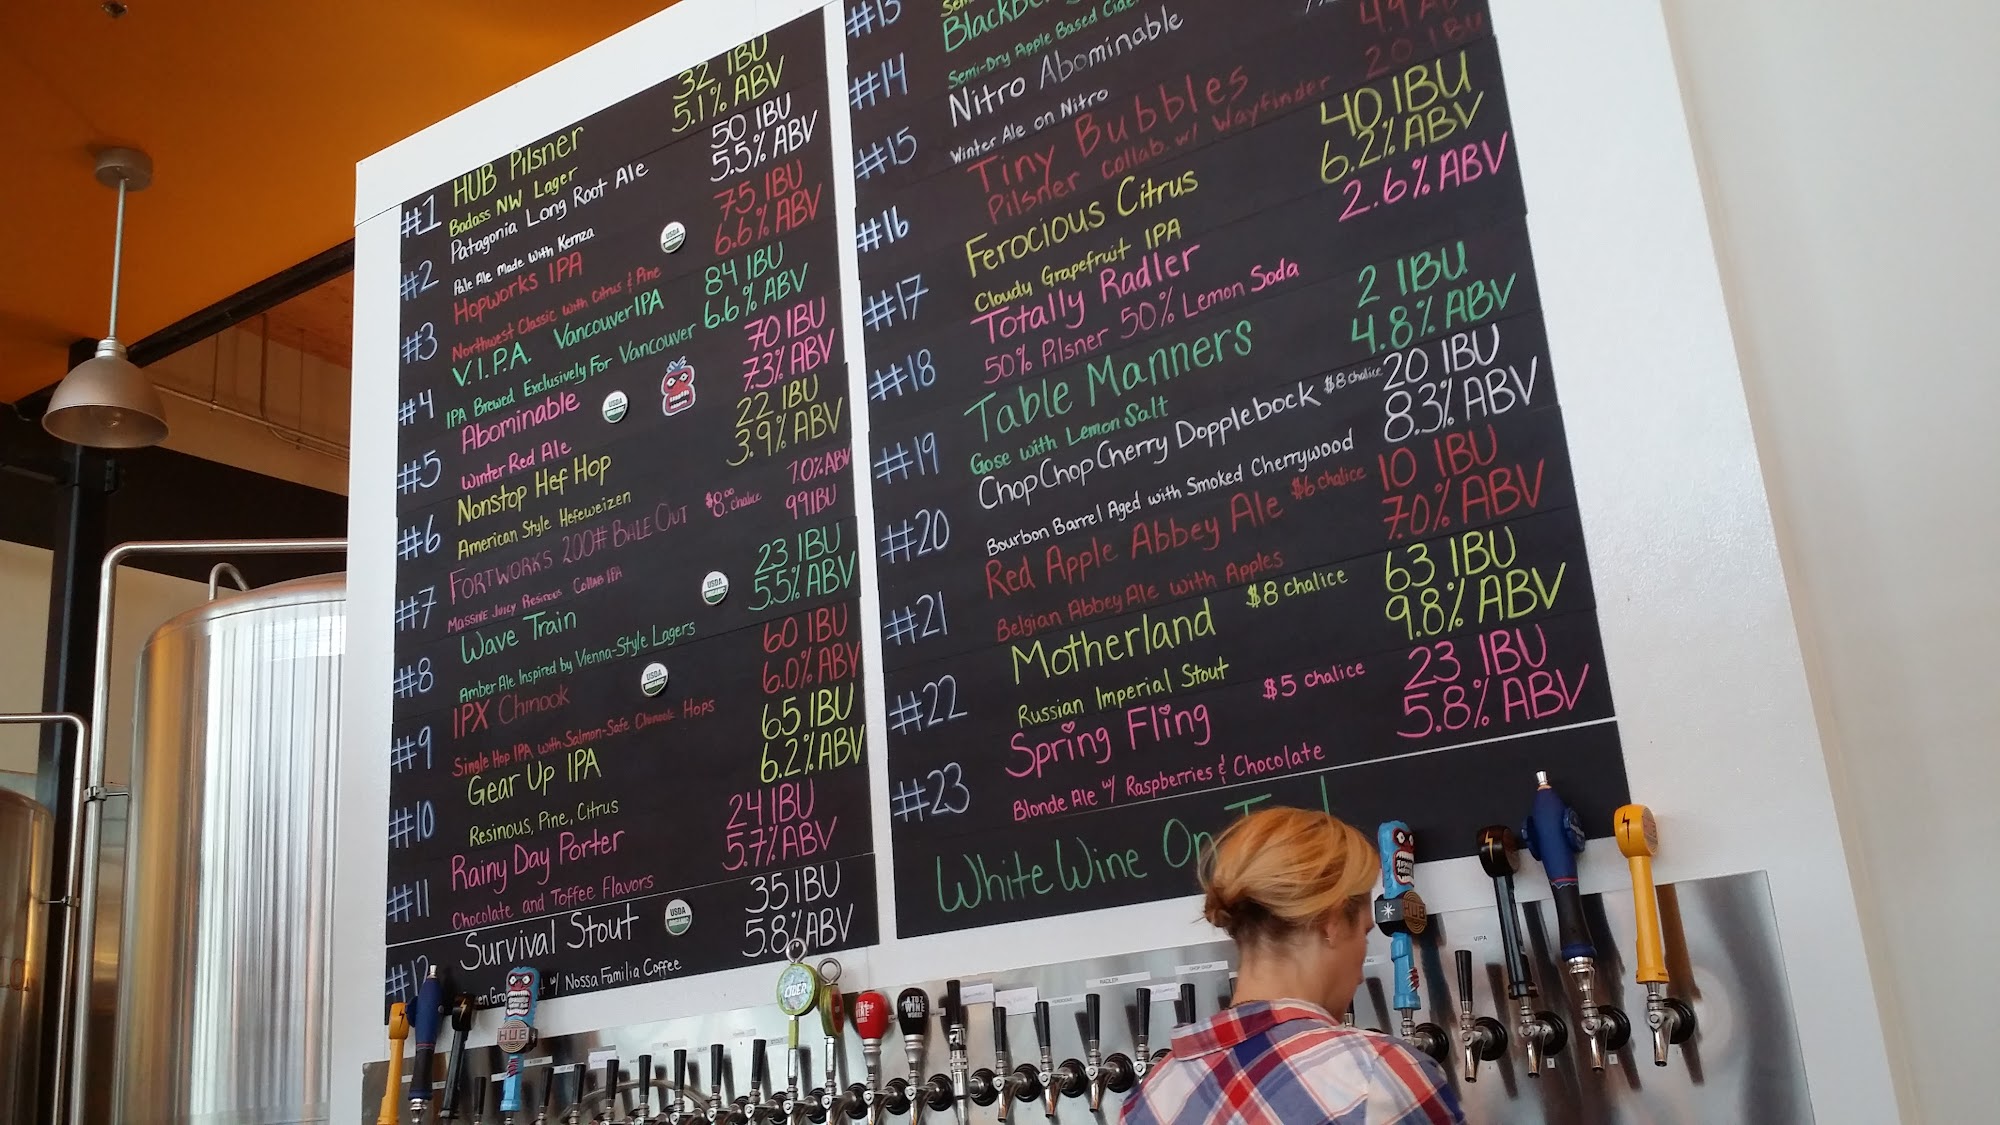 32 IBU
#1 HUB Pilsner 5.1% ABV
Badass NW Lager
50 IBU
#2 Patagonia Long Root Ale 5.5% ABV
Pale Ale Made With Kernza
75 IBU
#3 Hopworks IPA USDA ORGANIC 6.6% ABV
Northwest Classic with Citrus & Pine
84 IBU
#4 V.I.P.A. Vancouver IPA 6.6% ABV
IPA Brewed Exclusively For Vancouver
70 IBU
#5 Abominable USDA ORGANIC 7.3% ABV
Winter Red Ale
22 IBU
#6 Nonstop Hef Hop 3.9% ABV
American Style Hefeweizen
7.0% ABV
#7 FORTWORKS 200# BALE OUT $8.00 chalice 99 IBU
MASSIVE JUICY RESINOUS COLLAB IPA
23 IBU
#8 Wave Train USDA ORGANIC 5.5% ABV
Amber Ale Inspired by Vienna-Style Lagers
60 IBU
#9 IPX Chinook USDA ORGANIC 6.0% ABV
Single Hop IPA with Salmon-Safe Chinook Hops
65 IBU
#10 Gear Up IPA 6.2% ABV
Resinous, Pine, Citrus
24 IBU
#11 Rainy Day Porter 5.7% ABV
Chocolate and Toffee Flavors
35 IBU
#12 Survival Stout USDA ORGANIC 5.8% ABV
w/ Nossa Familia Coffee
#13
Semi-Dry Apple Based Cider
#14 Nitro Abominable
Winter Ale on Nitro
#15 Tiny Bubbles 20 IBU
Pilsner collab. w/ Wayfinder
40 IBU
#16 Ferocious Citrus 6.2% ABV
Cloudy Grapefruit IPA
#17 Totally Radler 2.6% ABV
50% Pilsner 50% Lemon Soda
2 IBU
#18 Table Manners 4.8% ABV
Gose with Lemon Salt
20 IBU
#19 Chop Chop Cherry Dopplebock $8 chalice 8.3% ABV
Bourbon Barrel Aged with Smoked Cherrywood
10 IBU
#20 Red Apple Abbey Ale $6 chalice 7.0% ABV
Belgian Abbey Ale with Apples
63 IBU
#21 Motherland $8 chalice 9.8% ABV
Russian Imperial Stout
23 IBU
#22 Spring Fling $5 chalice 5.8% ABV
Blonde Ale w/ Raspberries & Chocolate
#23 White Wine On
HUB
CIDER
HUB
VIPA
RADLER
CHOP CHOP